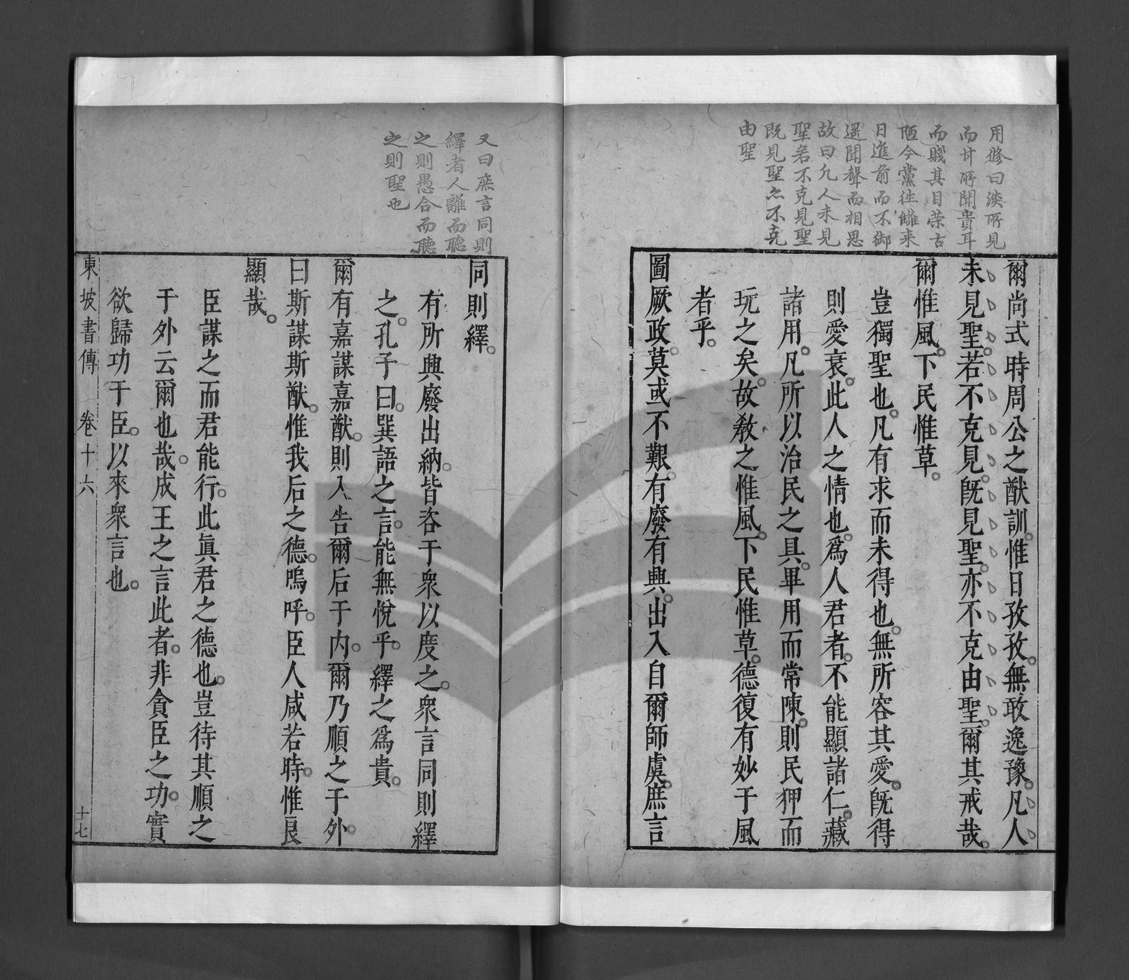 用修曰淡所見
而甘所聞貴耳
而賤其目荣古
陋今黨往讎来
日進前而不御
遥聞聲而相思
故曰凡人未見
聖若不克見聖
既見聖亦不克
由聖
爾尚式時周公之猷訓。惟日孜孜。無敢逸豫。凡人
未見聖。若不克見。旣見聖。亦不克由聖。爾其戒哉。
爾惟風。下民惟草。
豈獨聖也。凡有求而未得也。無所容其愛。旣得
則愛衰。此人之情也。爲人君者。不能顯諸仁。藏
諸用。凡所以治民之具。畢用而常陳。則民狎而
玩之矣。故敎之惟風。下民惟草。德復有妙于風
者乎。
圖厥政。莫或不艱。有廢有興。出入自爾師虞。庶言
又曰庶言同則
繹者人離而聽
之則愚合而聽
之則聖也
同則繹。
有所興廢出納。皆咨于衆以度之。衆言同則繹
之。孔子曰。巽語之言。能無悅乎。繹之爲貴。
爾有嘉謀嘉猷。則入告爾后于內。爾乃順之于外。
曰斯謀斯猷。惟我后之德。嗚呼。臣人咸若時。惟良
顯哉。
臣謀之而君能行。此眞君之德也。豈待其順之
于外云爾也哉。成王之言此者。非貪臣之功。實
欲歸功于臣。以來衆言也。
東坡書傳 卷十六 十七